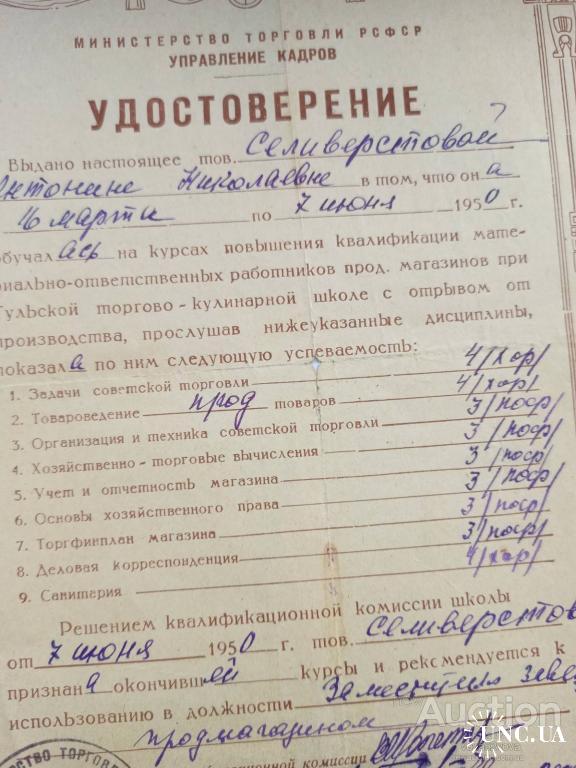 МИНИСТЕРСТВО ТОРГОВЛИ РСФСР
УПРАВЛЕНИЕ КАДРОВ
УДОСТОВЕРЕНИЕ
Выдано настоящее тов. Селиверстовой
Антонине Николаевне в том, что она
16 марта по 7 июня 1950 г.
обучалась на курсах повышения квалификации мате-
риально-ответственных работников прод. магазинов при
Тульской торгово-кулинарной школе с отрывом от
производства, прослушав нижеуказанные дисциплины,
показала по ним следующую успеваемость:
1. Задачи советской торговли 4/хор/
2. Товароведение прод товаров 4/хор/
3. Организация и техника советской торговли 3/поср/
4. Хозяйственно-торговые вычисления 3/поср/
5. Учет и отчетность магазина 3/поср/
6. Основы хозяйственного права 3/поср/
7. Торгфинплан магазина 3/поср/
8. Деловая корреспонденция 3/поср/
9. Санитерия 4/хор/
Решением квалификационной комиссии школы
от 7 июня 1950 г. тов. Селиверстов
признана окончившей курсы и рексмендуется к
использованию в должности Заместителя завед
продмагазином
СТВО ТОРГОВЛ
ационной комиссии
Auction
UNC.UA